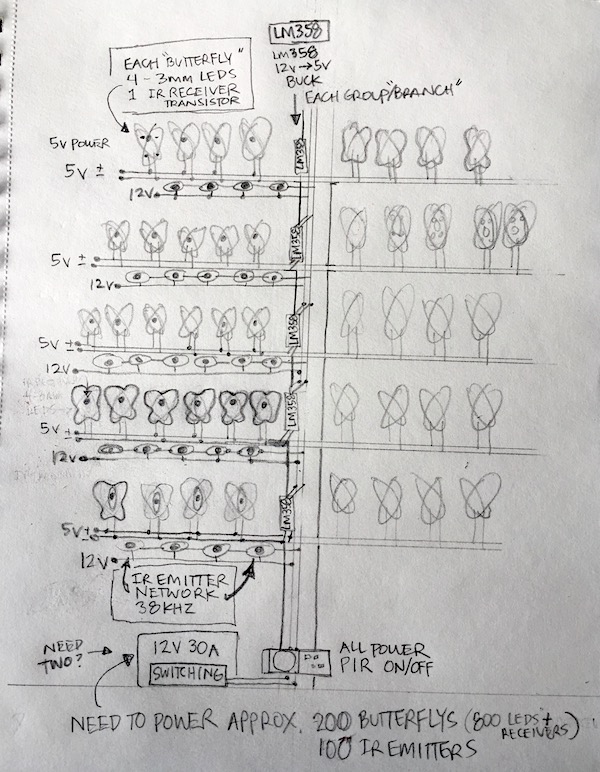 LM358
LM358
12V→5V
BUCK
EACH GROUP/"BRANCH"
EACH "BUTTERFLY"
4-3MM LEDS
1 IR RECEIVER
TRANSISTOR
5V POWER
5V ±
12V
LM358
5V ±
12V
LM358
5V ±
12V
LM358
5V ±
12V
LM358
5V ±
12V
LM358
IR EMITTER
NETWORK
38KHZ
NEED
TWO?
12V 30A
SWITCHING
ALL POWER
PIR ON/OFF
NEED TO POWER APPROX. 200 BUTTERFLYS (800 LEDS +
RECEIVERS)
100 IR EMITTERS